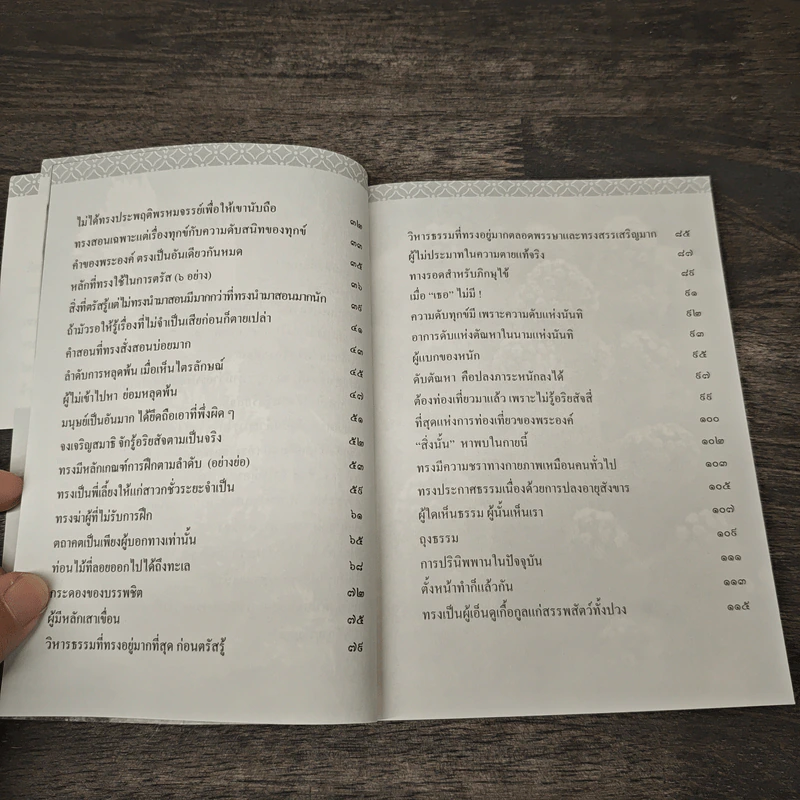 ไม่ได้ทรงประพฤติพรหมจรรย์เพื่อให้เขานับถือ ๓๒
ทรงสอนเฉพาะแต่เรื่องทุกข์กับความดับสนิทของทุกข์ ๓๓
คำของพระองค์ ตรงเป็นอันเดียวกันหมด ๓๕
หลักที่ทรงใช้ในการตรัส (๖ อย่าง) ๓๖
สิ่งที่ตรัสรู้แต่ไม่ทรงนำมาสอนมีมากกว่าที่ทรงนำมาสอนมากนัก ๓๙
ถ้ามัวรอให้รู้เรื่องที่ไม่จำเป็นเสียก่อนก็ตายเปล่า ๔๑
คำสอนที่ทรงสั่งสอนบ่อยมาก ๔๓
ลำดับการหลุดพ้น เมื่อเห็นไตรลักษณ์ ๔๕
ผู้ไม่เข้าไปหา ย่อมหลุดพ้น ๔๗
มนุษย์เป็นอันมาก ได้ยึดถือเอาที่พึ่งผิด ๆ ๕๑
จงเจริญสมาธิ จักรู้อริยสัจตามเป็นจริง ๕๒
ทรงมีหลักเกณฑ์การฝึกตามลำดับ (อย่างย่อ) ๕๓
ทรงเป็นพี่เลี้ยงให้แก่สาวกชั่วระยะจำเป็น ๕๙
ทรงฆ่าผู้ที่ไม่รับการฝึก ๖๑
ตถาคตเป็นเพียงผู้บอกทางเท่านั้น ๖๕
ท่อนไม้ที่ลอยออกไปได้ถึงทะเล ๖๘
กระดองของบรรพชิต ๗๒
ผู้มีหลักเสาเขื่อน ๗๕
วิหารธรรมที่ทรงอยู่มากที่สุด ก่อนตรัสรู้ ๗๙
วิหารธรรมที่ทรงอยู่มากตลอดพรรษาและทรงสรรเสริญมาก ๘๕
ผู้ไม่ประมาทในความตายแท้จริง ๘๗
ทางรอดสำหรับภิกษุไข้ ๘๙
เมื่อ “เธอ” ไม่มี ! ๙๑
ความดับทุกข์มี เพราะความดับแห่งนันทิ ๙๒
อาการดับแห่งตัณหาในนามแห่งนันทิ ๙๓
ผู้แบกของหนัก ๙๕
ดับตัณหา คือปลงภาระหนักลงได้ ๙๗
ต้องท่องเที่ยวมาแล้ว เพราะไม่รู้อริยสัจสี่ ๙๙
ที่สุดแห่งการท่องเที่ยวของพระองค์ ๑๐๐
“สิ่งนั้น” หาพบในกายนี้ ๑๐๒
ทรงมีความชราทางกายภาพเหมือนคนทั่วไป ๑๐๓
ทรงประกาศธรรมเนื่องด้วยการปลงอายุสังขาร ๑๐๕
ผู้ใดเห็นธรรม ผู้นั้นเห็นเรา ๑๐๗
ถุงธรรม ๑๐๙
การปรินิพพานในปัจจุบัน ๑๑๑
ตั้งหน้าทำก็แล้วกัน ๑๑๓
ทรงเป็นผู้เอ็นดูเกื้อกูลแก่สรรพสัตว์ทั้งปวง ๑๑๕